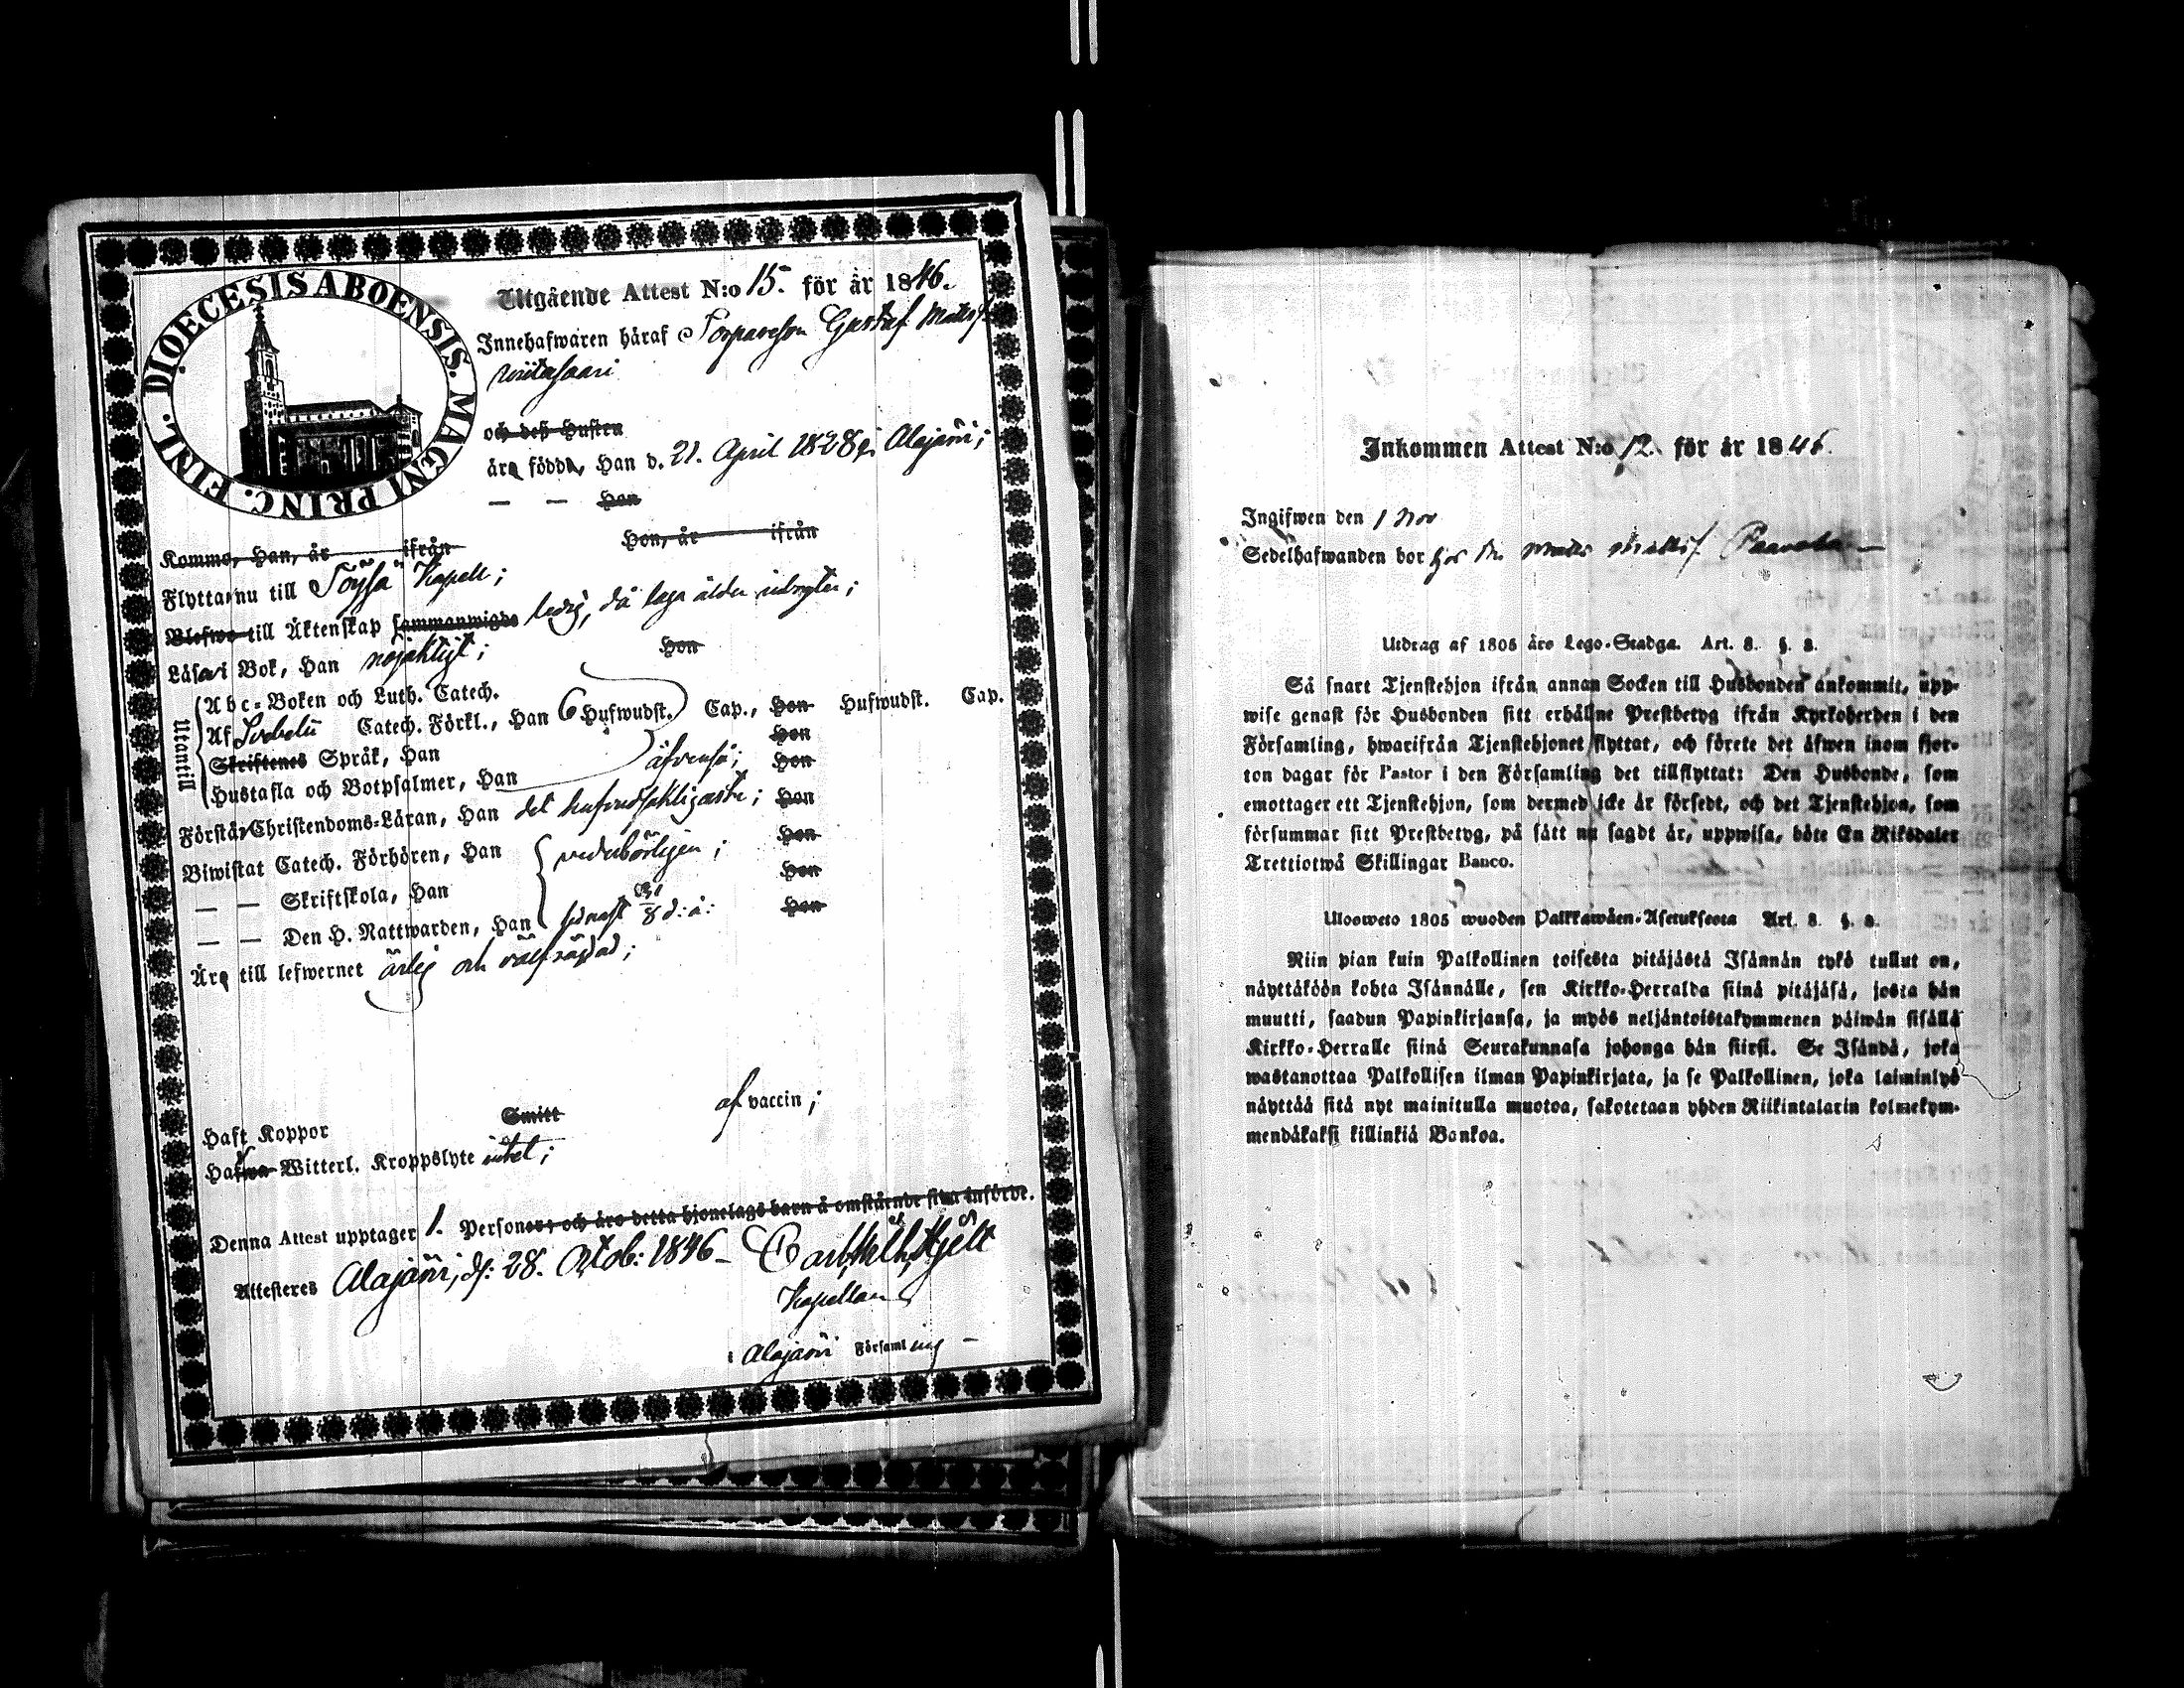 DIOECESIS ABOENSIS. MAGNI PRINC. FINL.
Utgående Attest N:o 15. för år 1846.
Innehafwaren häraf Torpareson Gustaf Matts
och deß Hustru
äro födda, Han d. 21. April 1828 i Alajärvi;
— — Hon
Komme, Han, år ifrån Hon, år ifrån
Flytta nu till Töysä Kapell;
Blefwo till Äktenskap sammanwigde ledig, då laga ålder inbryter;
Läsa i Bok, Han nöjaktigt; Hon
Utantill
Abc-Boken och Luth. Catech.
Af Svebelii Catech. Förkl., Han 6 Hufwudst. Cap., Hon Hufwudst. Cap.
Skriftenes Språk, Han Hon
Hustafla och Botpsalmer, Han äfvenså; Hon
Förstår Christendoms-Läran, Han det hufvudsakligaste; Hon
Biwistat Catech. Förhören, Han vederbörligen; Hon
— — Skriftskola, Han Hon
— — Den H. Nattwarden, Han senast 8 d: å: Hon
Äro till lefwernet ärlig och välfrägdad;
Haft Koppor Smitt af vaccin;
Hafwa Witterl. Kroppslyte intet;
Denna Attest upptager 1. Personer, och äro detta hjonelags barn å omstående sida införde.
Attesteres Alajärvi, d: 28. Octob: 1846 – Carl Wilh. Hjelt
Kapellan
i Alajärvi Församling –
Inkommen Attest N:o 12. för år 1846.
Ingifwen den 1 Nov
Sedelhafwanden bor hos Matts. Paavola –
Utdrag af 1805 års Lego-Stadga. Art. 8. §. 8.
Så snart Tjenstehjon ifrån annan Socken till Husbonden ankommit, upp-
wise genast för Husbonden sitt erhållne Prestbetyg ifrån Kyrkoherden i den
Församling, hwarifrån Tjenstehjonet flyttat, och förete det äfwen inom fjor-
ton dagar för Pastor i den Församling det tillflyttat: Den Husbonde, som
emottager ett Tjenstehjon, som dermed icke är försedt, och det Tjenstehjon, som
försummar sitt Prestbetyg, på sätt nu sagdt är, uppwisa, böte En Riksdaler
Trettiotwå Skillingar Banco.
Ulosweto 1805 wuoden Palkkawäen-Asetuksesta Art. 8. §. 8.
Niin pian kuin Palkollinen toisesta pitäjästä Isännän tykö tullut on,
näyttäköön kohta Isännälle, sen Kirkko-Herralda siinä pitäjäsä, josta hän
muutti, saadun Papinkirjansa, ja myös neljäntoistakymmenen päiwän sisällä
Kirkko-Herralle siinä Seurakunnasa johonga hän siirsi. Se Isändä, joka
wastanottaa Palkollisen ilman Papinkirjata, ja se Palkollinen, joka laiminlyö
näyttää sitä nyt mainitulla muotoa, sakotetaan yhden Riikintalarin kolmekym-
mendäkaksi killinkiä Bankoa.